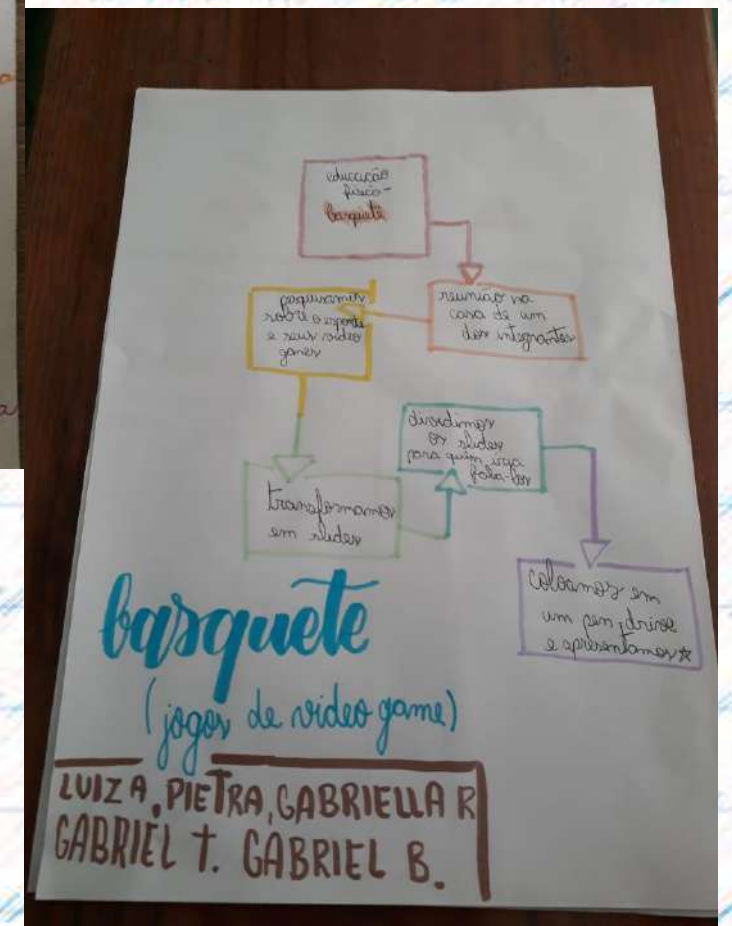 educação
física -
basquete
reunião na
casa de um
dos integrantes
pesquisamos
sobre o esporte
e seus video
games
transformamos
em slides
dividimos
os slides
para quem iria
falá-los
colocamos em
um pen drive
e apresentamos
basquete
(jogos de video game)
LUIZA, PIETRA, GABRIELLA R
GABRIEL T. GABRIEL B.
a